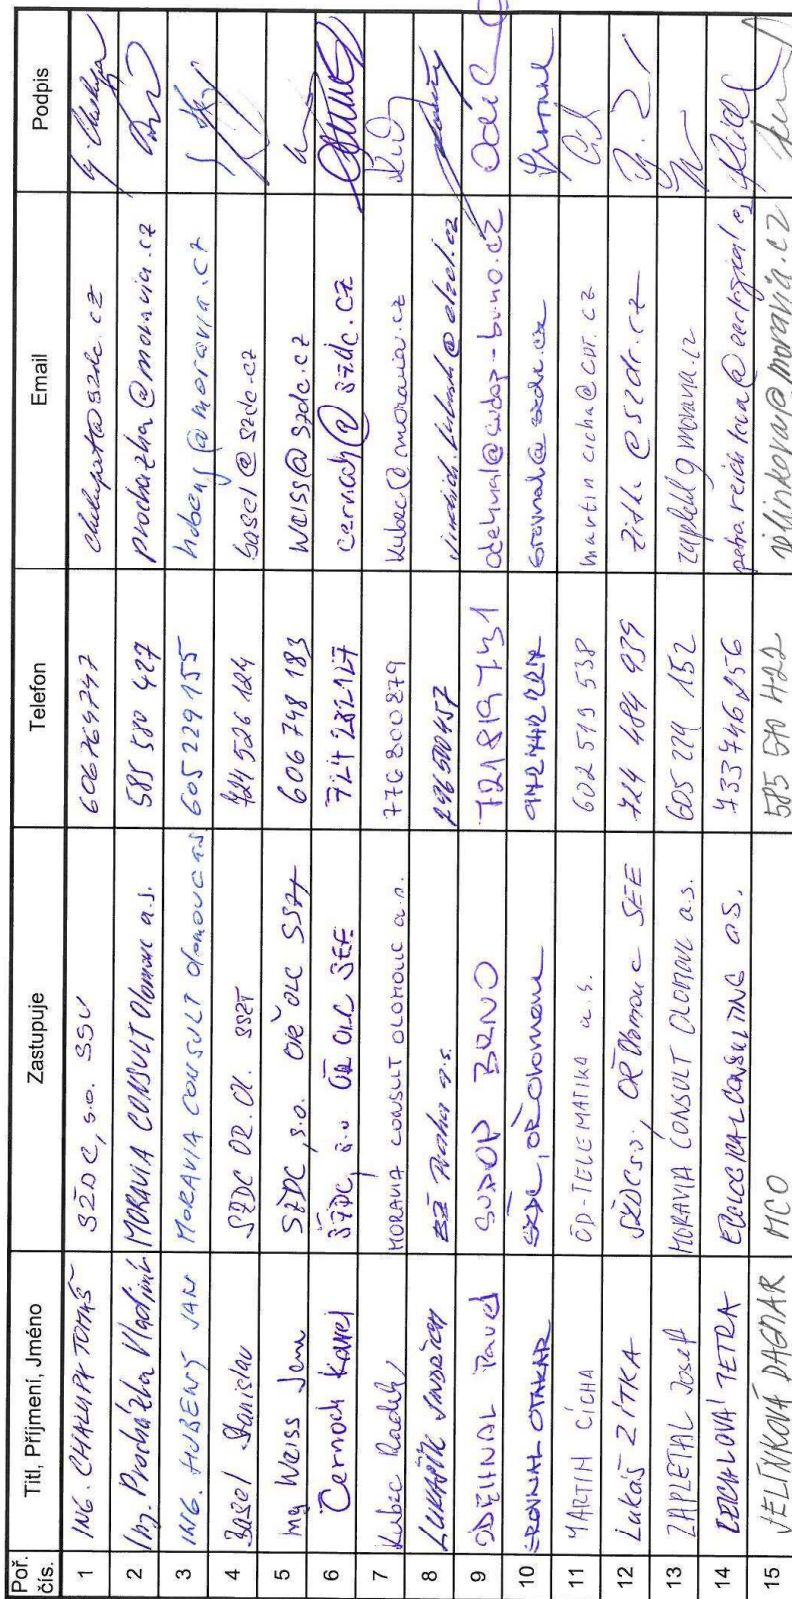 Poř. čís. Titl, Příjmení, Jméno Zastupuje Telefon Email Podpis
1 ING. CHALUPA TOMÁŠ SŽDC, s.o. SSV 606764747 chalupat@szdc.cz
2 Ing. Procházka Vladimír MORAVIA CONSULT Olomouc a.s. 585 580 427 prochazka@moravia.cz
3 ING. HUBENÝ JAN MORAVIA CONSULT Olomouc a.s. 605 229 155 hubeny@moravia.cz
4 Basel Stanislav SŽDC OŘ. Ol. SSZT 724 526 124 basel@szdc.cz
5 Ing Weiss Jan SŽDC, s.o. OŘ OLC SSZT 606 748 183 weiss@szdc.cz
6 Černoch Karel SŽDC, s.o OŘ OLC SEE 724 282 127 cernoch@szdc.cz
7 Kubec Radek MORAVIA CONSULT OLOMOUC a.s. 776 800 879 kubec@moravia.cz
8 LUKAŠÍK JINDŘICH EŽ Praha a.s. 296 500 457
9 ODEHNAL Pavel SUDOP BRNO 721 819 731 odehnal@sudop-brno.cz
10 SROVNAL OTAKAR SŽDC, OŘ Olomouc srovnal@szdc.cz
11 MARTIN CÍCHA ČD-TELEMATIKA a.s. 602 519 538 martin.cicha@cdt.cz
12 Lukáš ZÍTKA SŽDC s.o., OŘ Olomouc SEE 724 484 939 zitka@szdc.cz
13 ZAPLETAL Josef MORAVIA CONSULT OLOMOUC a.s. 605 224 152
14 ECOLOGICAL CONSULTING a.s. 733 746 256
15 JELÍNKOVÁ DAGMAR MCO 585 570 422 jelinkova@moravia.cz